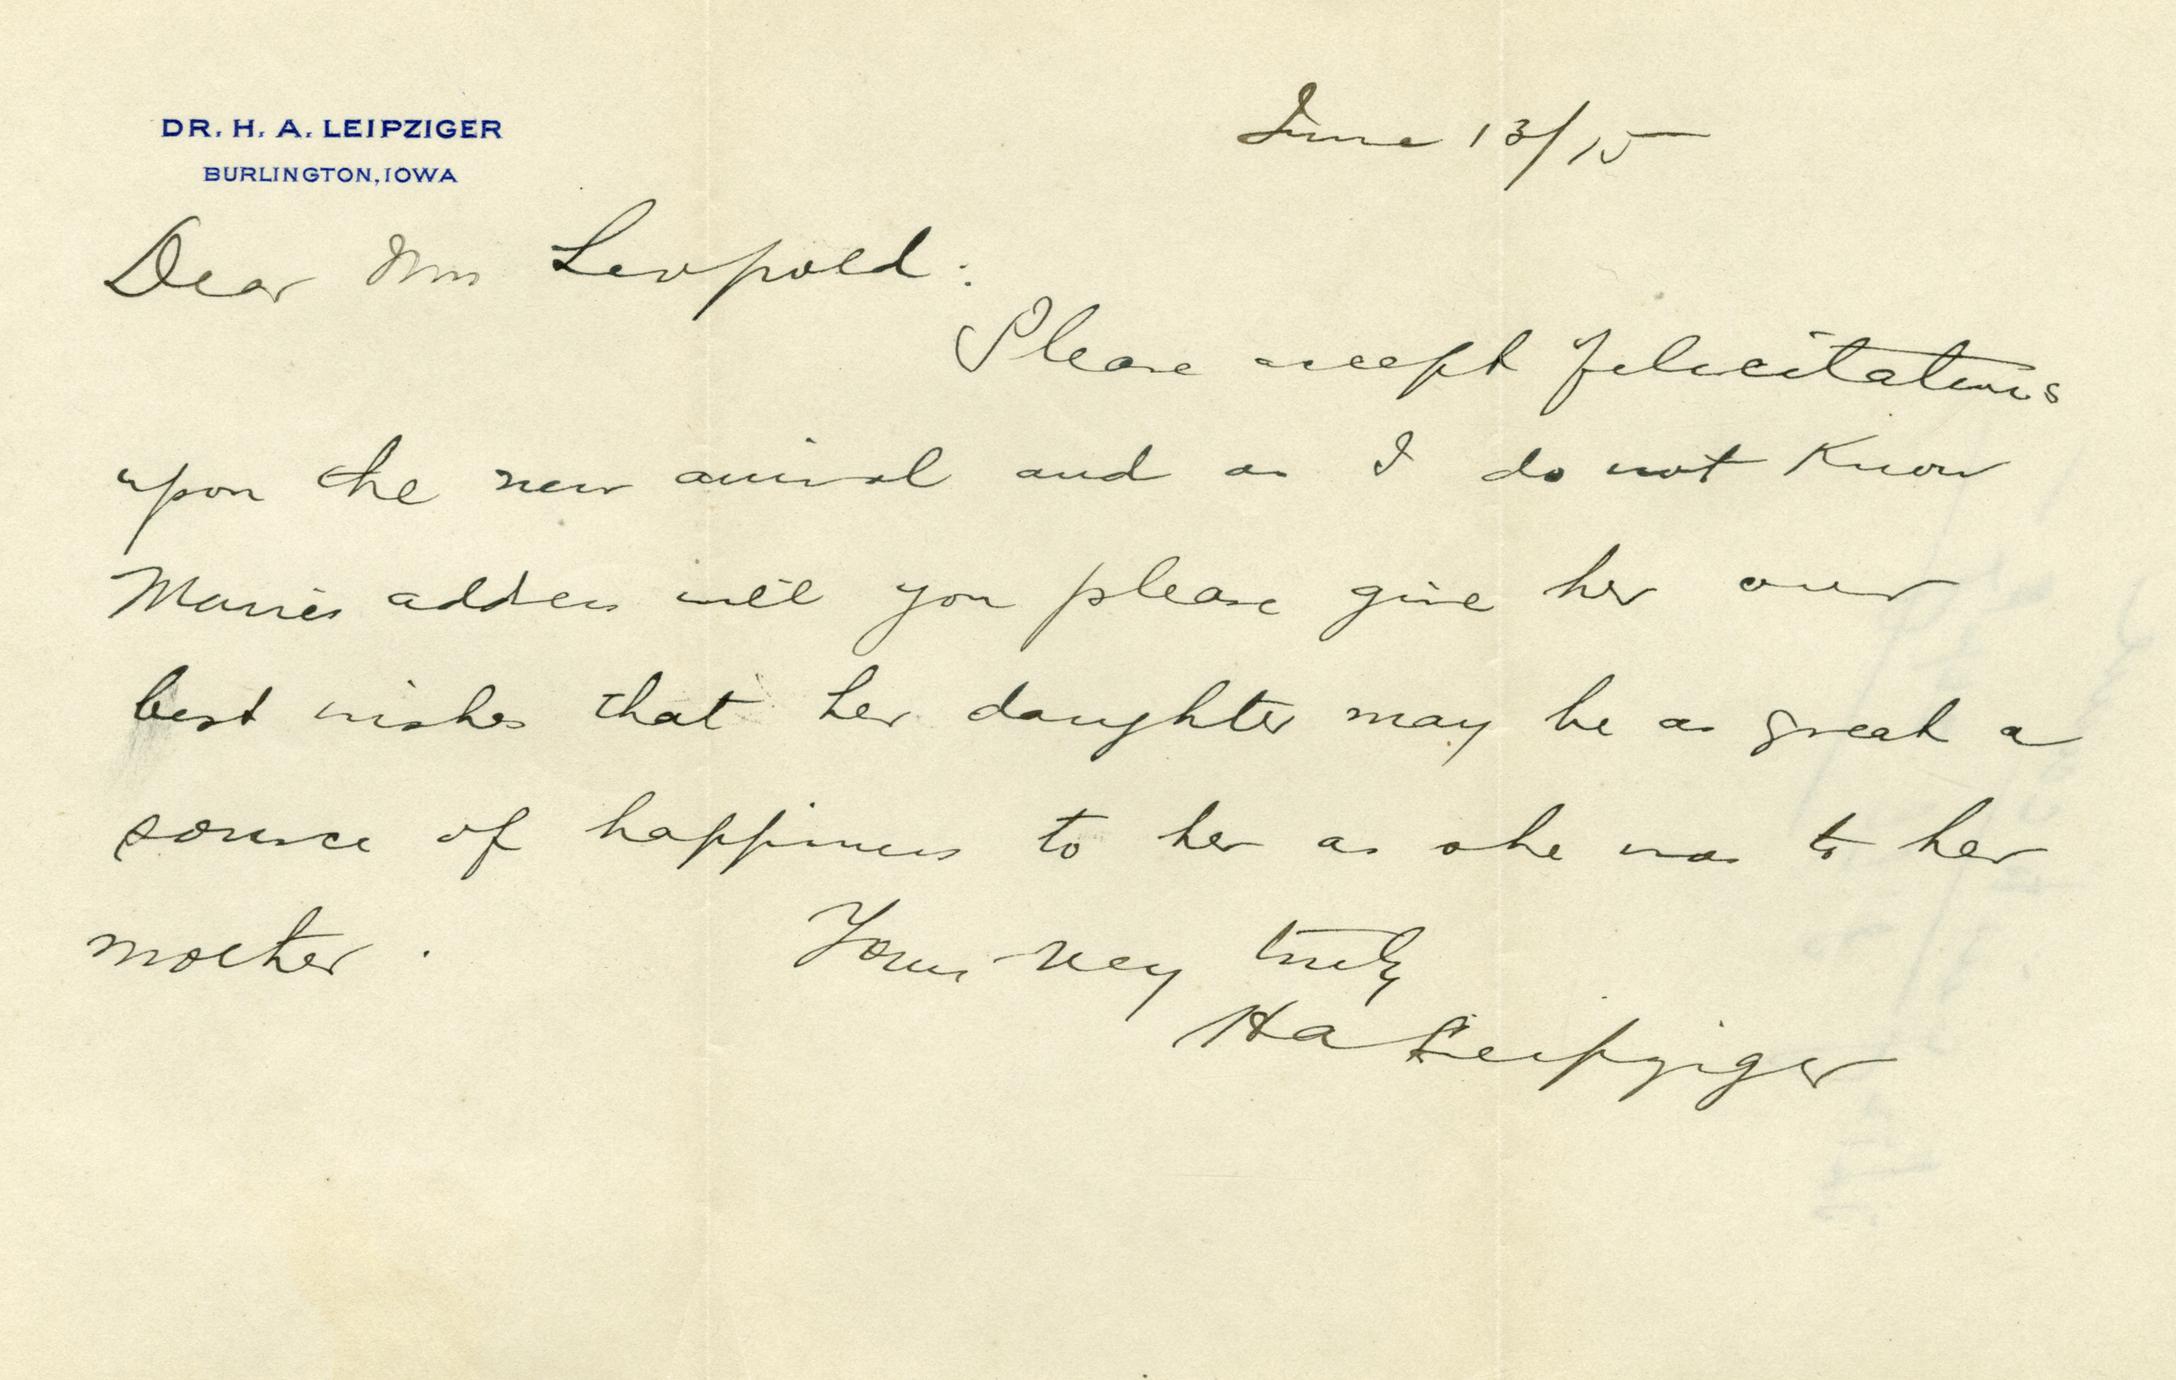 DR. H. A. LEIPZIGER
BURLINGTON, IOWA
June 13/15
Dear Mrs Leopold:
Please accept felicitations
upon the new arrival and as I do not know
Maries address will you please give her our
best wishes that her daughter may be as great a
source of happiness to her as she was to her
mother.
Yours very truly
HA Leipziger